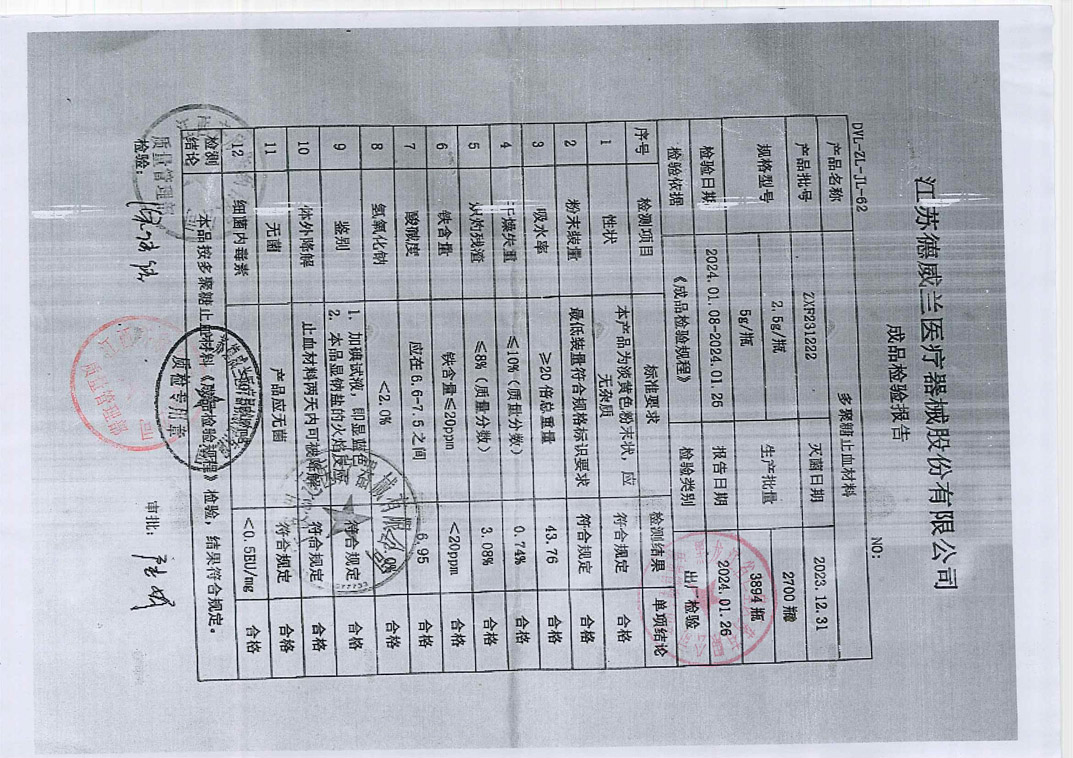 江苏德威兰医疗器械股份有限公司
成品检验报告
DVL-ZL-JL-62 NO:
产品名称 多聚糖止血材料
产品批号 ZXF231222 灭菌日期 2023.12.31
规格型号 2.5g/瓶 生产批量 2700 瓶
5g/瓶 3894 瓶
检验日期 2024.01.08-2024.01.25 报告日期 2024.01.26
检验依据 《成品检验规程》 检验类别 出厂检验
序号 检测项目 标准要求 检测结果 单项结论
1 性状 本产品为淡黄色粉末状,应无杂质 符合规定 合格
2 粉末装量 最低装量符合规格标识要求 符合规定 合格
3 吸水率 ≥20倍总重量 43.76 合格
4 干燥失重 ≤10%(质量分数) 0.74% 合格
5 炽灼残渣 ≤8%(质量分数) 3.08% 合格
6 铁含量 铁含量≤20ppm <20ppm 合格
7 酸碱度 应在6.6-7.5之间 6.95 合格
8 氢氧化钠 <2.0% .0% 合格
9 鉴别 1. 加碘试液,即显蓝色
2. 本品显钠盐的火焰反应 符合规定 合格
10 体外降解 止血材料两天内可被降解 符合规定 合格
11 无菌 产品应无菌 符合规定 合格
12 细菌内毒素 <0.5EU/mg 合格
检测结论 本品按多聚糖止血材料《成品检验规程》检验,结果符合规定。
检验: 审批:
质量管理部
质检专用章
器械有限公司